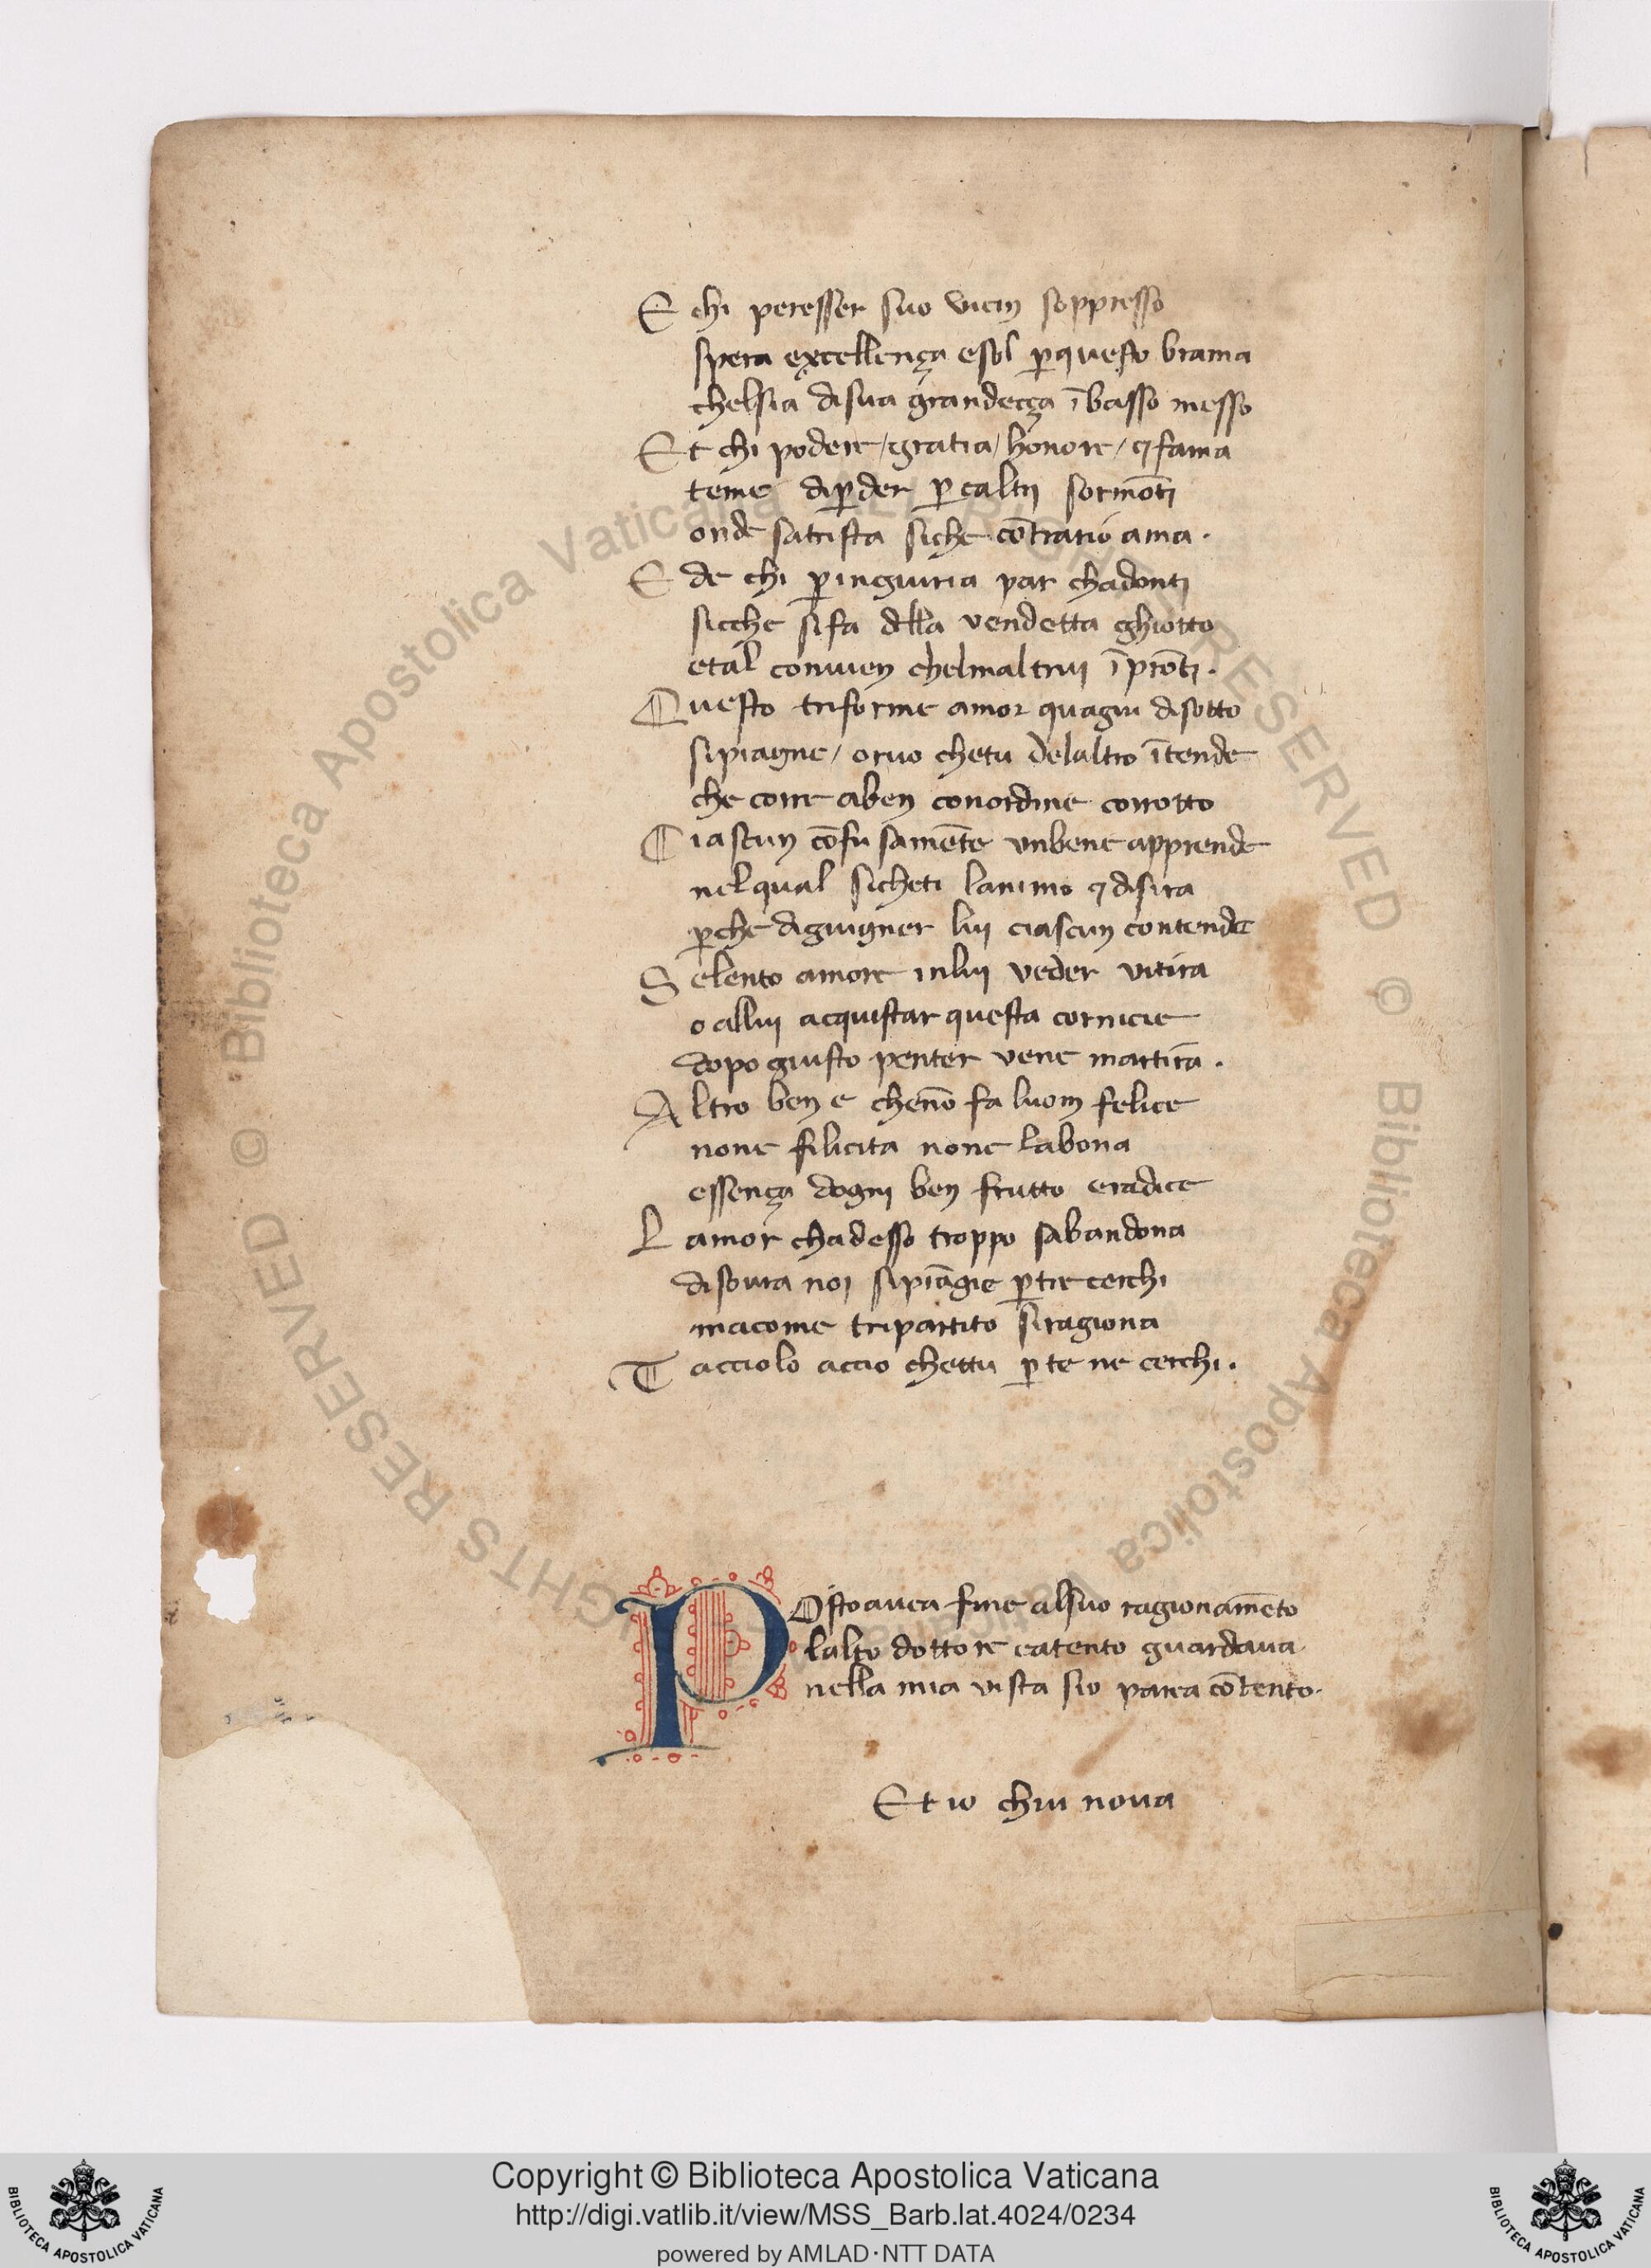 E chi peresser suo vicin soppresso
spera excellença esol ꝑquesto brama
chelsia disua grandecça ībasso messo
Et chi podere/gratia/honore/⁊fama
teme diꝑder ꝑcaltri sormōti
onde satrista siche cōtrario ama.
E de chi ꝑingiuria par chadonti
sicche sifa della vendetta ghiotto
etal convien chelmaltrui īprōti.
Questo triforme amor quagiu disotto
sipiagne/ orvo chetu delaltro ītende
che corre aben conordine corrotto
Ciascun cōfusamēte unbene apprende
nelqual sicheti lanimo ⁊disira
ꝑche digiugner lui ciascun contende
Selento amore inlui veder vitira
o allui acquistar questa cornicie
dopo giusto penter vene martira.
Altro ben e chenō fa luom felice
none filicita none labona
essença dogni ben frutto eradice
Lamor chadesso troppo sabandona
disovra noi sipiāgie ꝑtre cerchi
macome tripartito siragiona
Tacciolo accio chettu ꝑte ne cerchi.
POstoavea fine alsuo ragionamēto
lalto dottore eatento guardava
nella mia vista sio parea cōtento.
Et io chui nova
Copyright © Biblioteca Apostolica Vaticana
http://digi.vatlib.it/view/MSS_Barb.lat.4024/0234
powered by AMLAD·NTT DATA
BIBLIOTECA APOSTOLICA VATICANA
BIBLIOTECA APOSTOLICA VATICANA